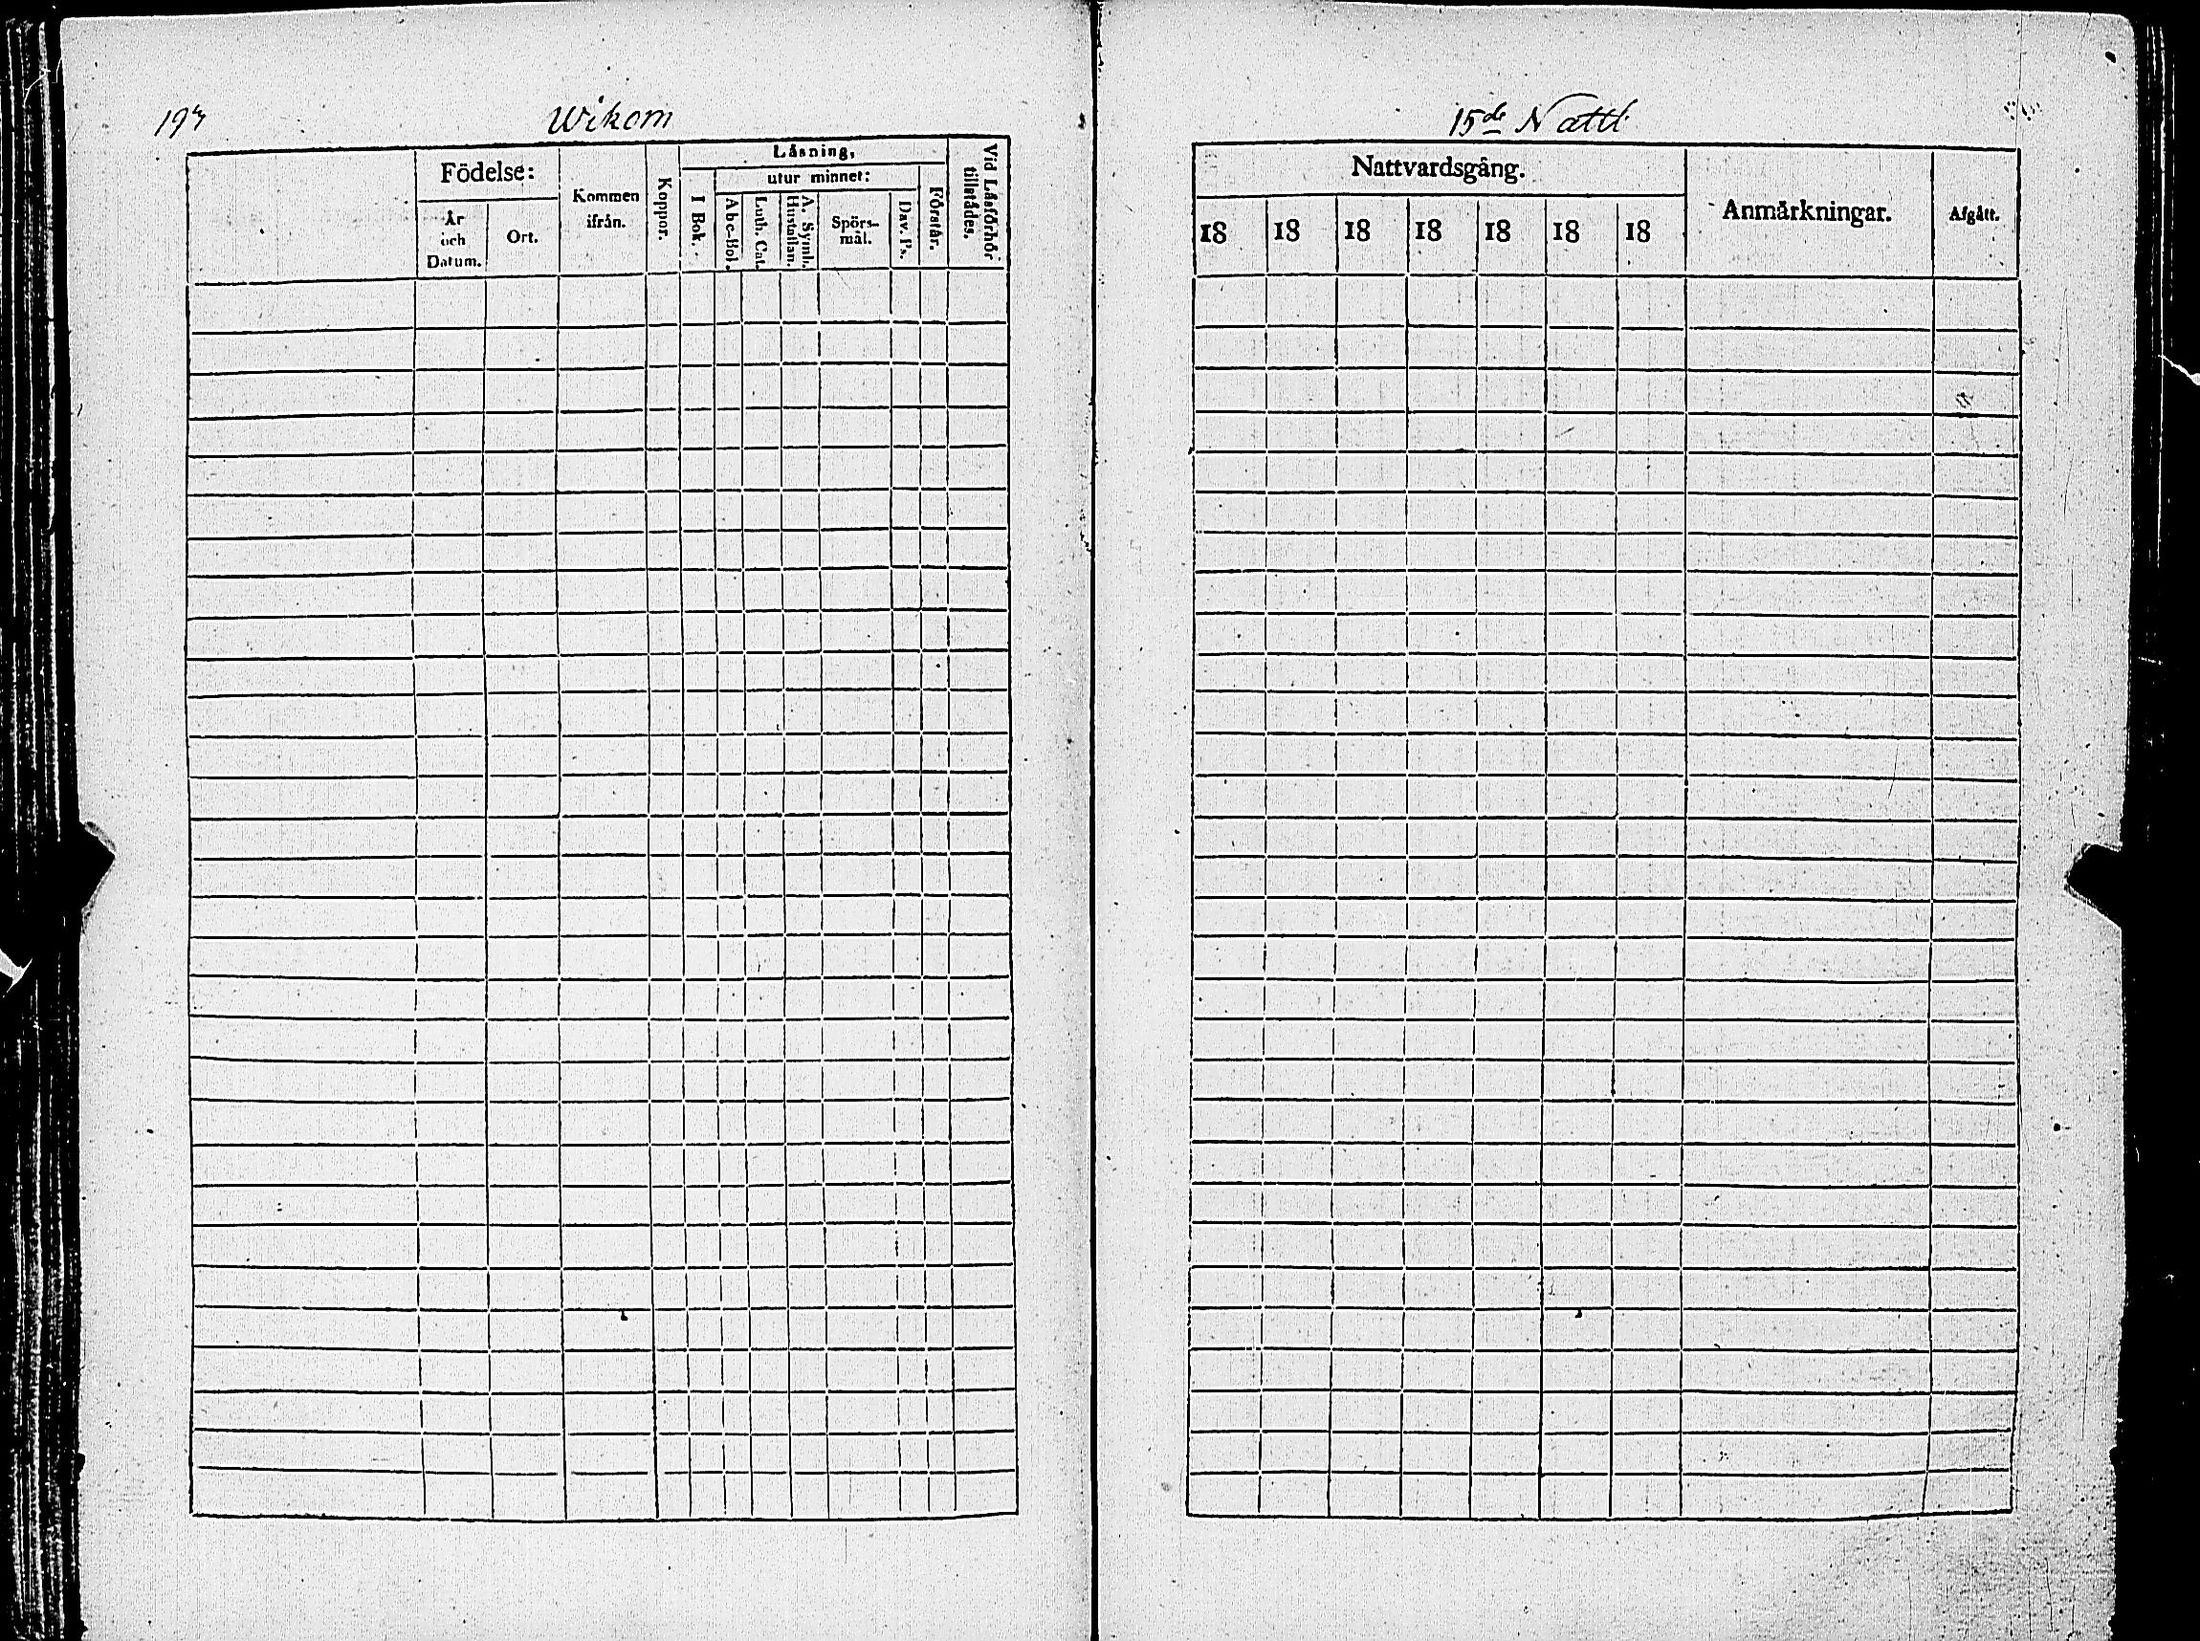 197 Wikom
Födelse:
År
och
Datum.
Ort.
Kommen
ifrån.
Koppor.
Låsning,
I Bok.
utur minnet:
Abc-Bok.
Luth. Cat.
A. Symb.
Hustaflan.
Spörs-
mål.
Dav. Ps.
Förstår.
Vid Låsförhör
tillstådes.
15de Nattl
Nattvardsgång.
18 18 18 18 18 18 18
Anmärkningar.
Afgått.